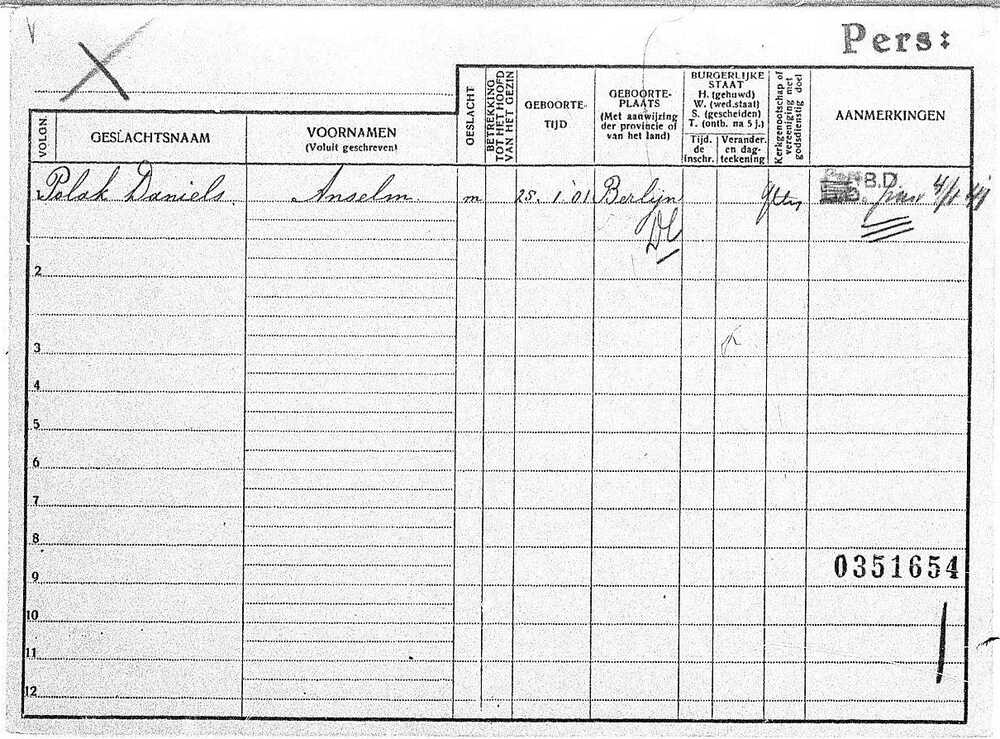 Pers:
VOLGN.
GESLACHTSNAAM
VOORNAMEN
(Voluit geschreven)
GESLACHT
BETREKKING
TOT HET HOOFD
VAN HET GEZIN
GEBOORTE-
TIJD
GEBOORTE-
PLAATS
(Met aanwijzing
der provincie of
van het land)
BURGERLIJKE
STAAT
H. (gehuwd)
W. (wed.staat)
S. (gescheiden)
T. (ontb. na 5 j.)
Tijd.
de
inschr.
Verander.
en dag-
teekening
Kerkgenootschap of
vereeniging met
godsdienstig doel
AANMERKINGEN
1 Polak Daniels Anselm m 25. 1.'01 Berlijn B.D.
Dl
2
3
4
5
6
7
8
0351654
9
10
11
12